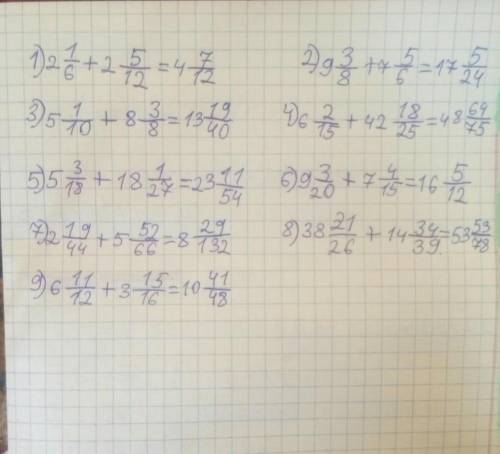 1) 2 1/6 + 2 5/12 = 4 7/12 2) 9 3/8 + 7 5/6 = 17 5/24
3) 5 1/10 + 8 3/8 = 13 19/40 4) 6 2/15 + 42 18/25 = 48 64/75
5) 5 3/18 + 18 1/27 = 23 11/54 6) 9 3/20 + 7 4/15 = 16 5/12
7) 2 19/44 + 5 52/66 = 8 29/132 8) 38 21/26 + 14 34/39 = 53 53/78
9) 6 11/12 + 3 15/16 = 10 41/48